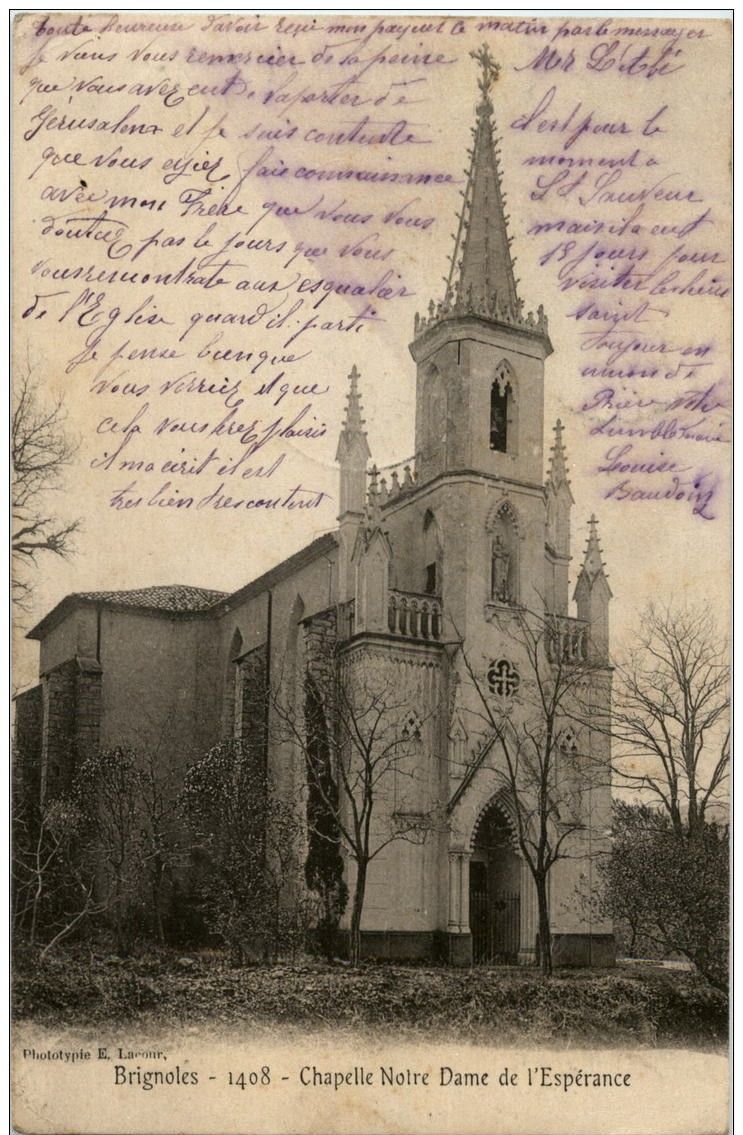 toute heureuse d'avoir reçu mon paquet le matin par le messager
Je viens vous remercier de la peine
que vous avez eut de l'aporter de
Jérusalem et je suis contente
que vous eyiez faie connaissance
avec mon Frère que vous vous
doutiez pas le jours que vous
vous remontrate aux esqualier
de l'Eglise quard il parti
Je pense bien que
vous verriez et que
cela vous ferez plaisir
il m'a écrit il est
tres bien tres content
Mer L'Abé
C'est pour le
moment a
St Sauveur
mais il a eut
15 jours pour
visiter les lieux
saint
Toujour en
union de
Prière votre
humble
Louise
Baudoin
Phototypie E. Lacour,
Brignoles - 1408 - Chapelle Notre Dame de l'Espérance